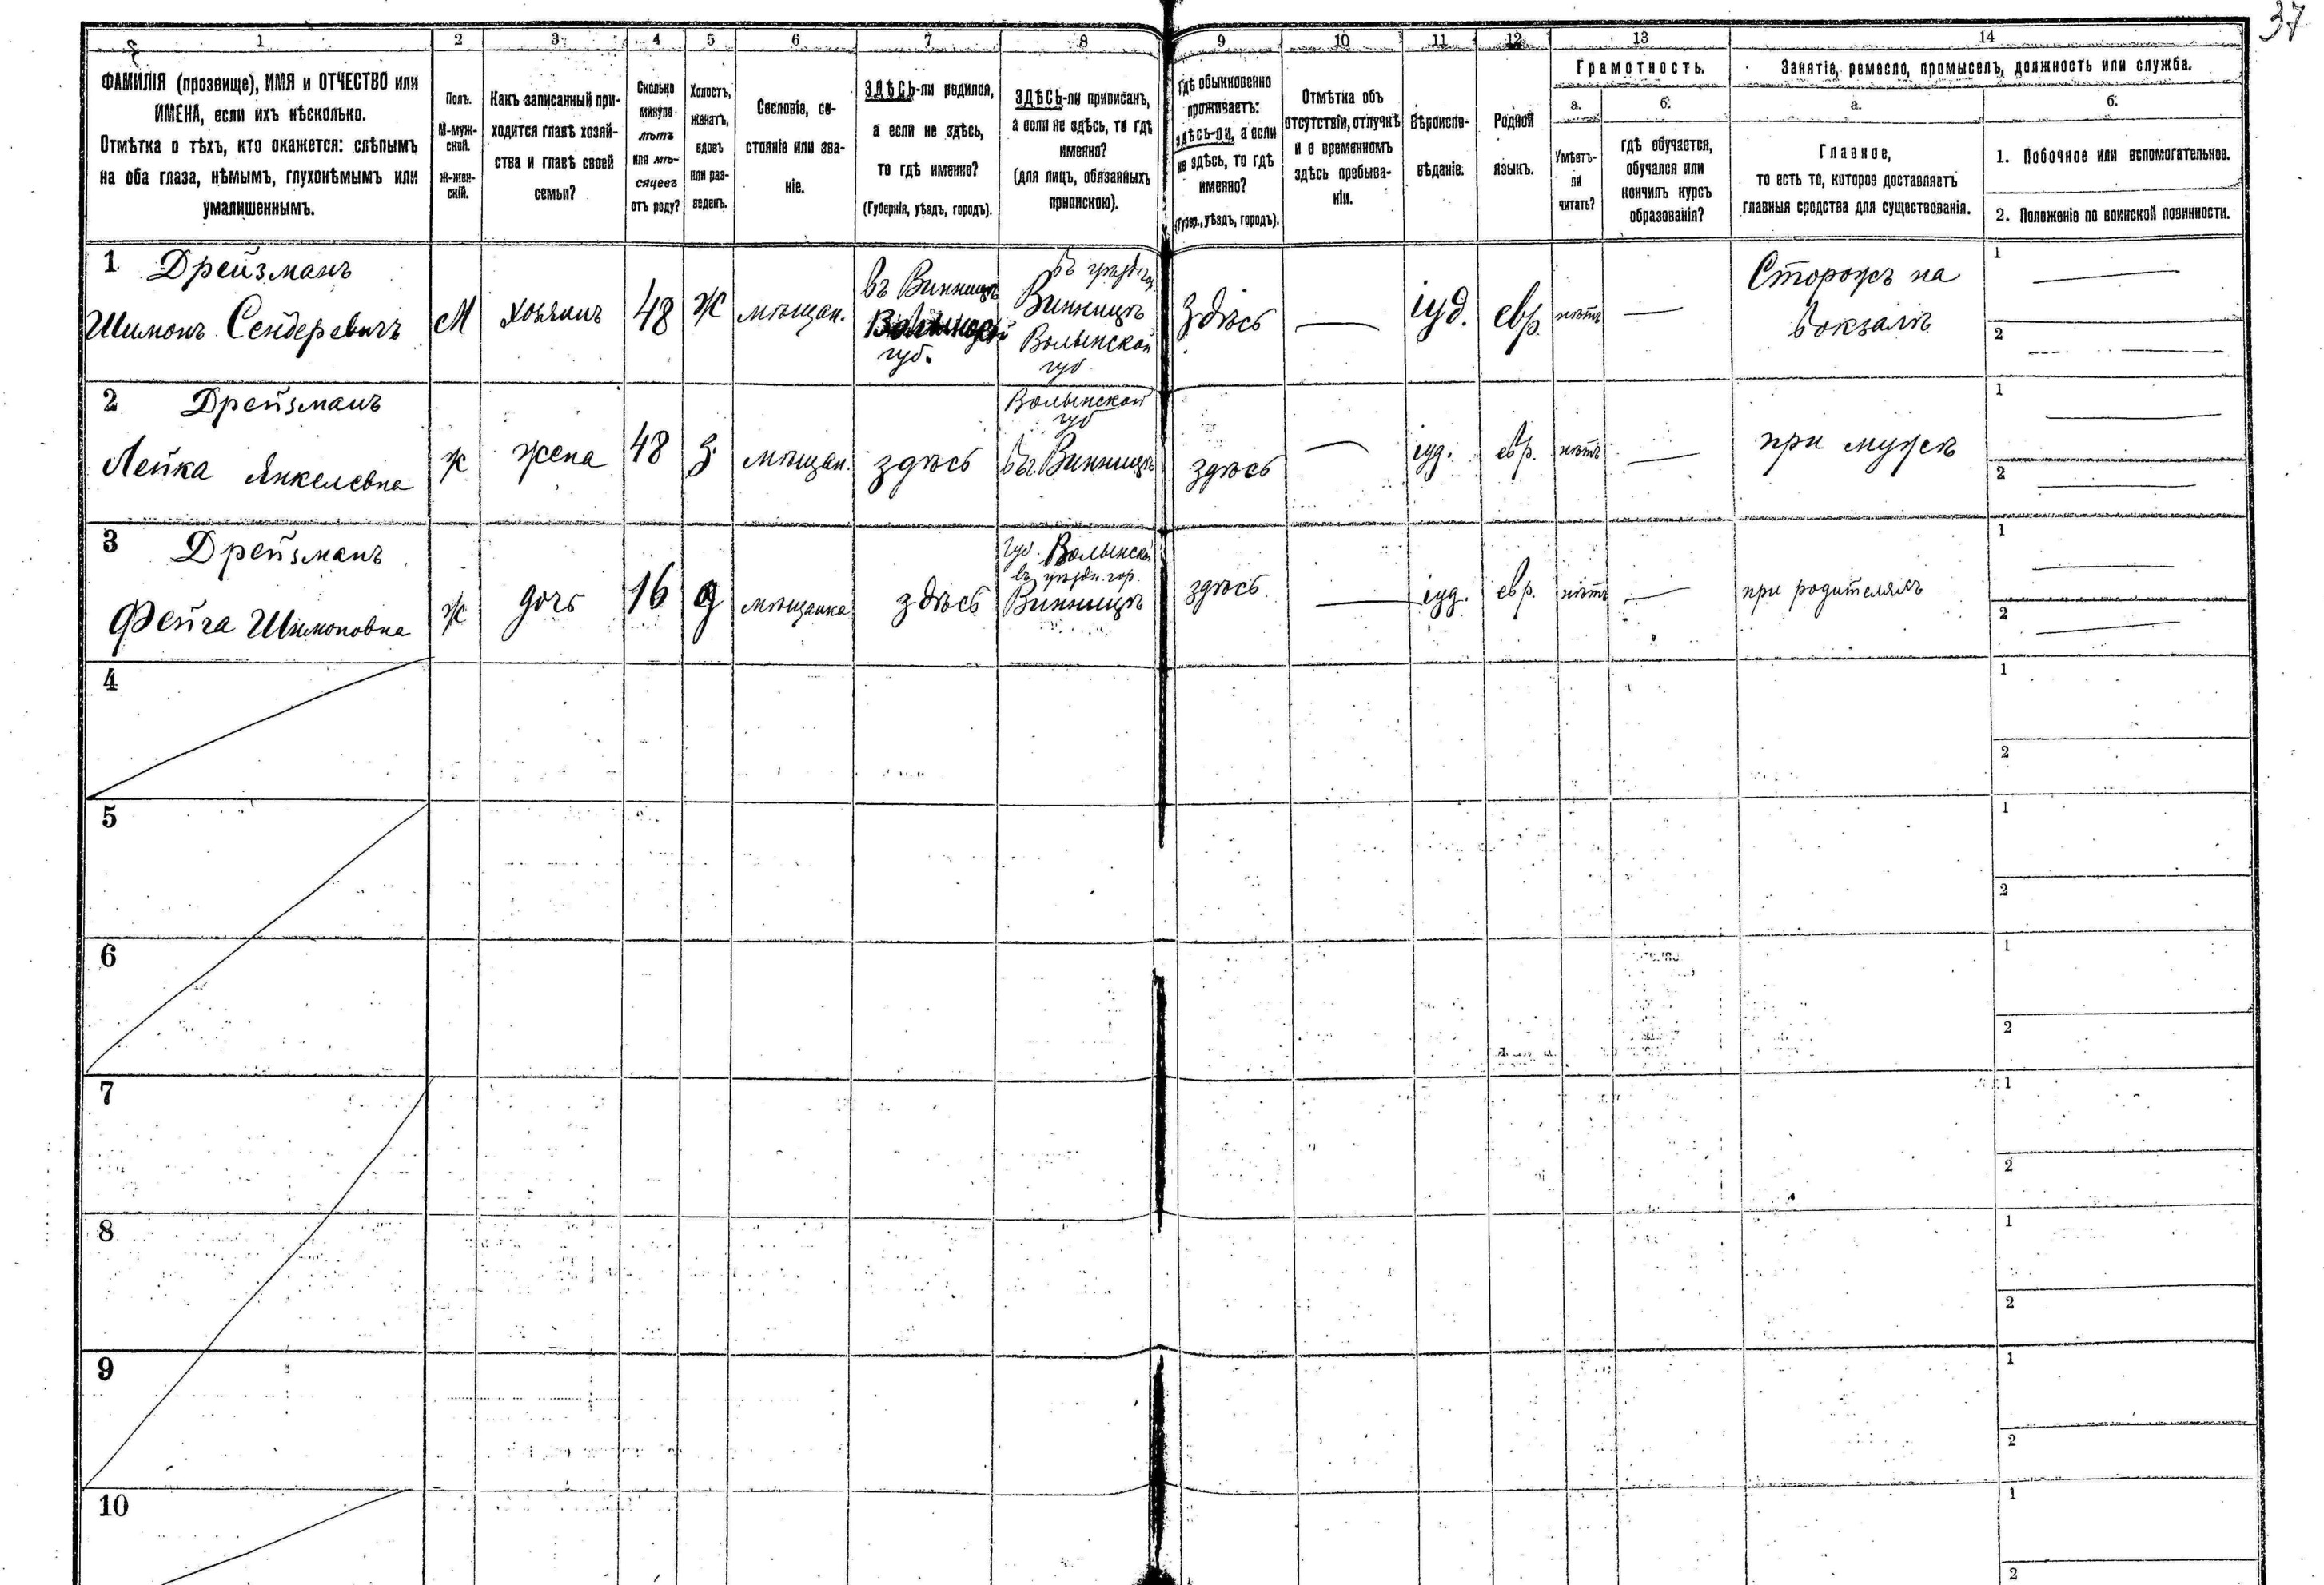 37
1 2 3 4 5 6 7 8 9 10 11 12 13 14
ФАМИЛІЯ (прозвище), ИМЯ и ОТЧЕСТВО или
ИМЕНА, если ихъ нѣсколько.
Отмѣтка о тѣхъ, кто окажется: слѣпымъ
на оба глаза, нѣмымъ, глухонѣмымъ или
умалишеннымъ.
Полъ.
М-муж-
ской.
Ж-жен-
скій.
Какъ записанный при-
ходится главѣ хозяй-
ства и главѣ своей
семьи?
Сколько
минуло
лѣтъ
или мѣ-
сяцевъ
отъ роду?
Холостъ,
женатъ,
вдовъ
или раз-
веденъ.
Сословіе, со-
стояніе или зва-
ніе.
ЗДѢСЬ-ли родился,
а если не здѣсь,
то гдѣ именно?
(Губернія, уѣздъ, городъ).
ЗДѢСЬ-ли приписанъ,
а если не здѣсь, то гдѣ
именно?
(для лицъ, обязанныхъ
припискою).
Гдѣ обыкновенно
проживаетъ:
здѣсь-ли, а если
не здѣсь, то гдѣ
именно?
(Губер., уѣздъ, городъ).
Отмѣтка объ
отсутствіи, отлучкѣ
и о временномъ
здѣсь пребыва-
ніи.
Вѣроиспо-
вѣданіе.
Родной
языкъ.
Грамотность.
а.
Умѣетъ-
ли
читать?
б.
гдѣ обучается,
обучался или
кончилъ курсъ
образованія?
Занятіе, ремесло, промыселъ, должность или служба.
а.
Главное,
то есть то, которое доставляетъ
главныя средства для существованія.
б.
1. Побочное или вспомогательное.
2. Положеніе по воинской повинности.
1 Дрейзманъ
Шимонъ Сендеревичъ
М
хозяинъ
48
Ж
мѣщан.
въ Винницѣ
губ.
Винницѣ
Волынской
губ.
Здѣсь
—
іуд.
евр.
нѣтъ
—
Сторожъ на
вокзалѣ
1 —
2 —
2 Дрейзманъ
Лейка Янкелевна
ж
жена
48
З.
мѣщан.
здѣсь
Волынской
губ
въ Винницѣ
здѣсь
—
іуд.
евр.
нѣтъ
—
при мужѣ
1 —
2 —
3 Дрейзманъ
Фейга Шимоновна
ж
дочь
16
д
мѣщанка
здѣсь
губ. Волынской
въ уѣздн. гор.
Винницѣ
здѣсь.
—
іуд.
евр.
нѣтъ
—
при родителяхъ
1 —
2 —
4
1
2
5
1
2
6
1
2
7
1
2
8
1
2
9
1
2
10
1
2